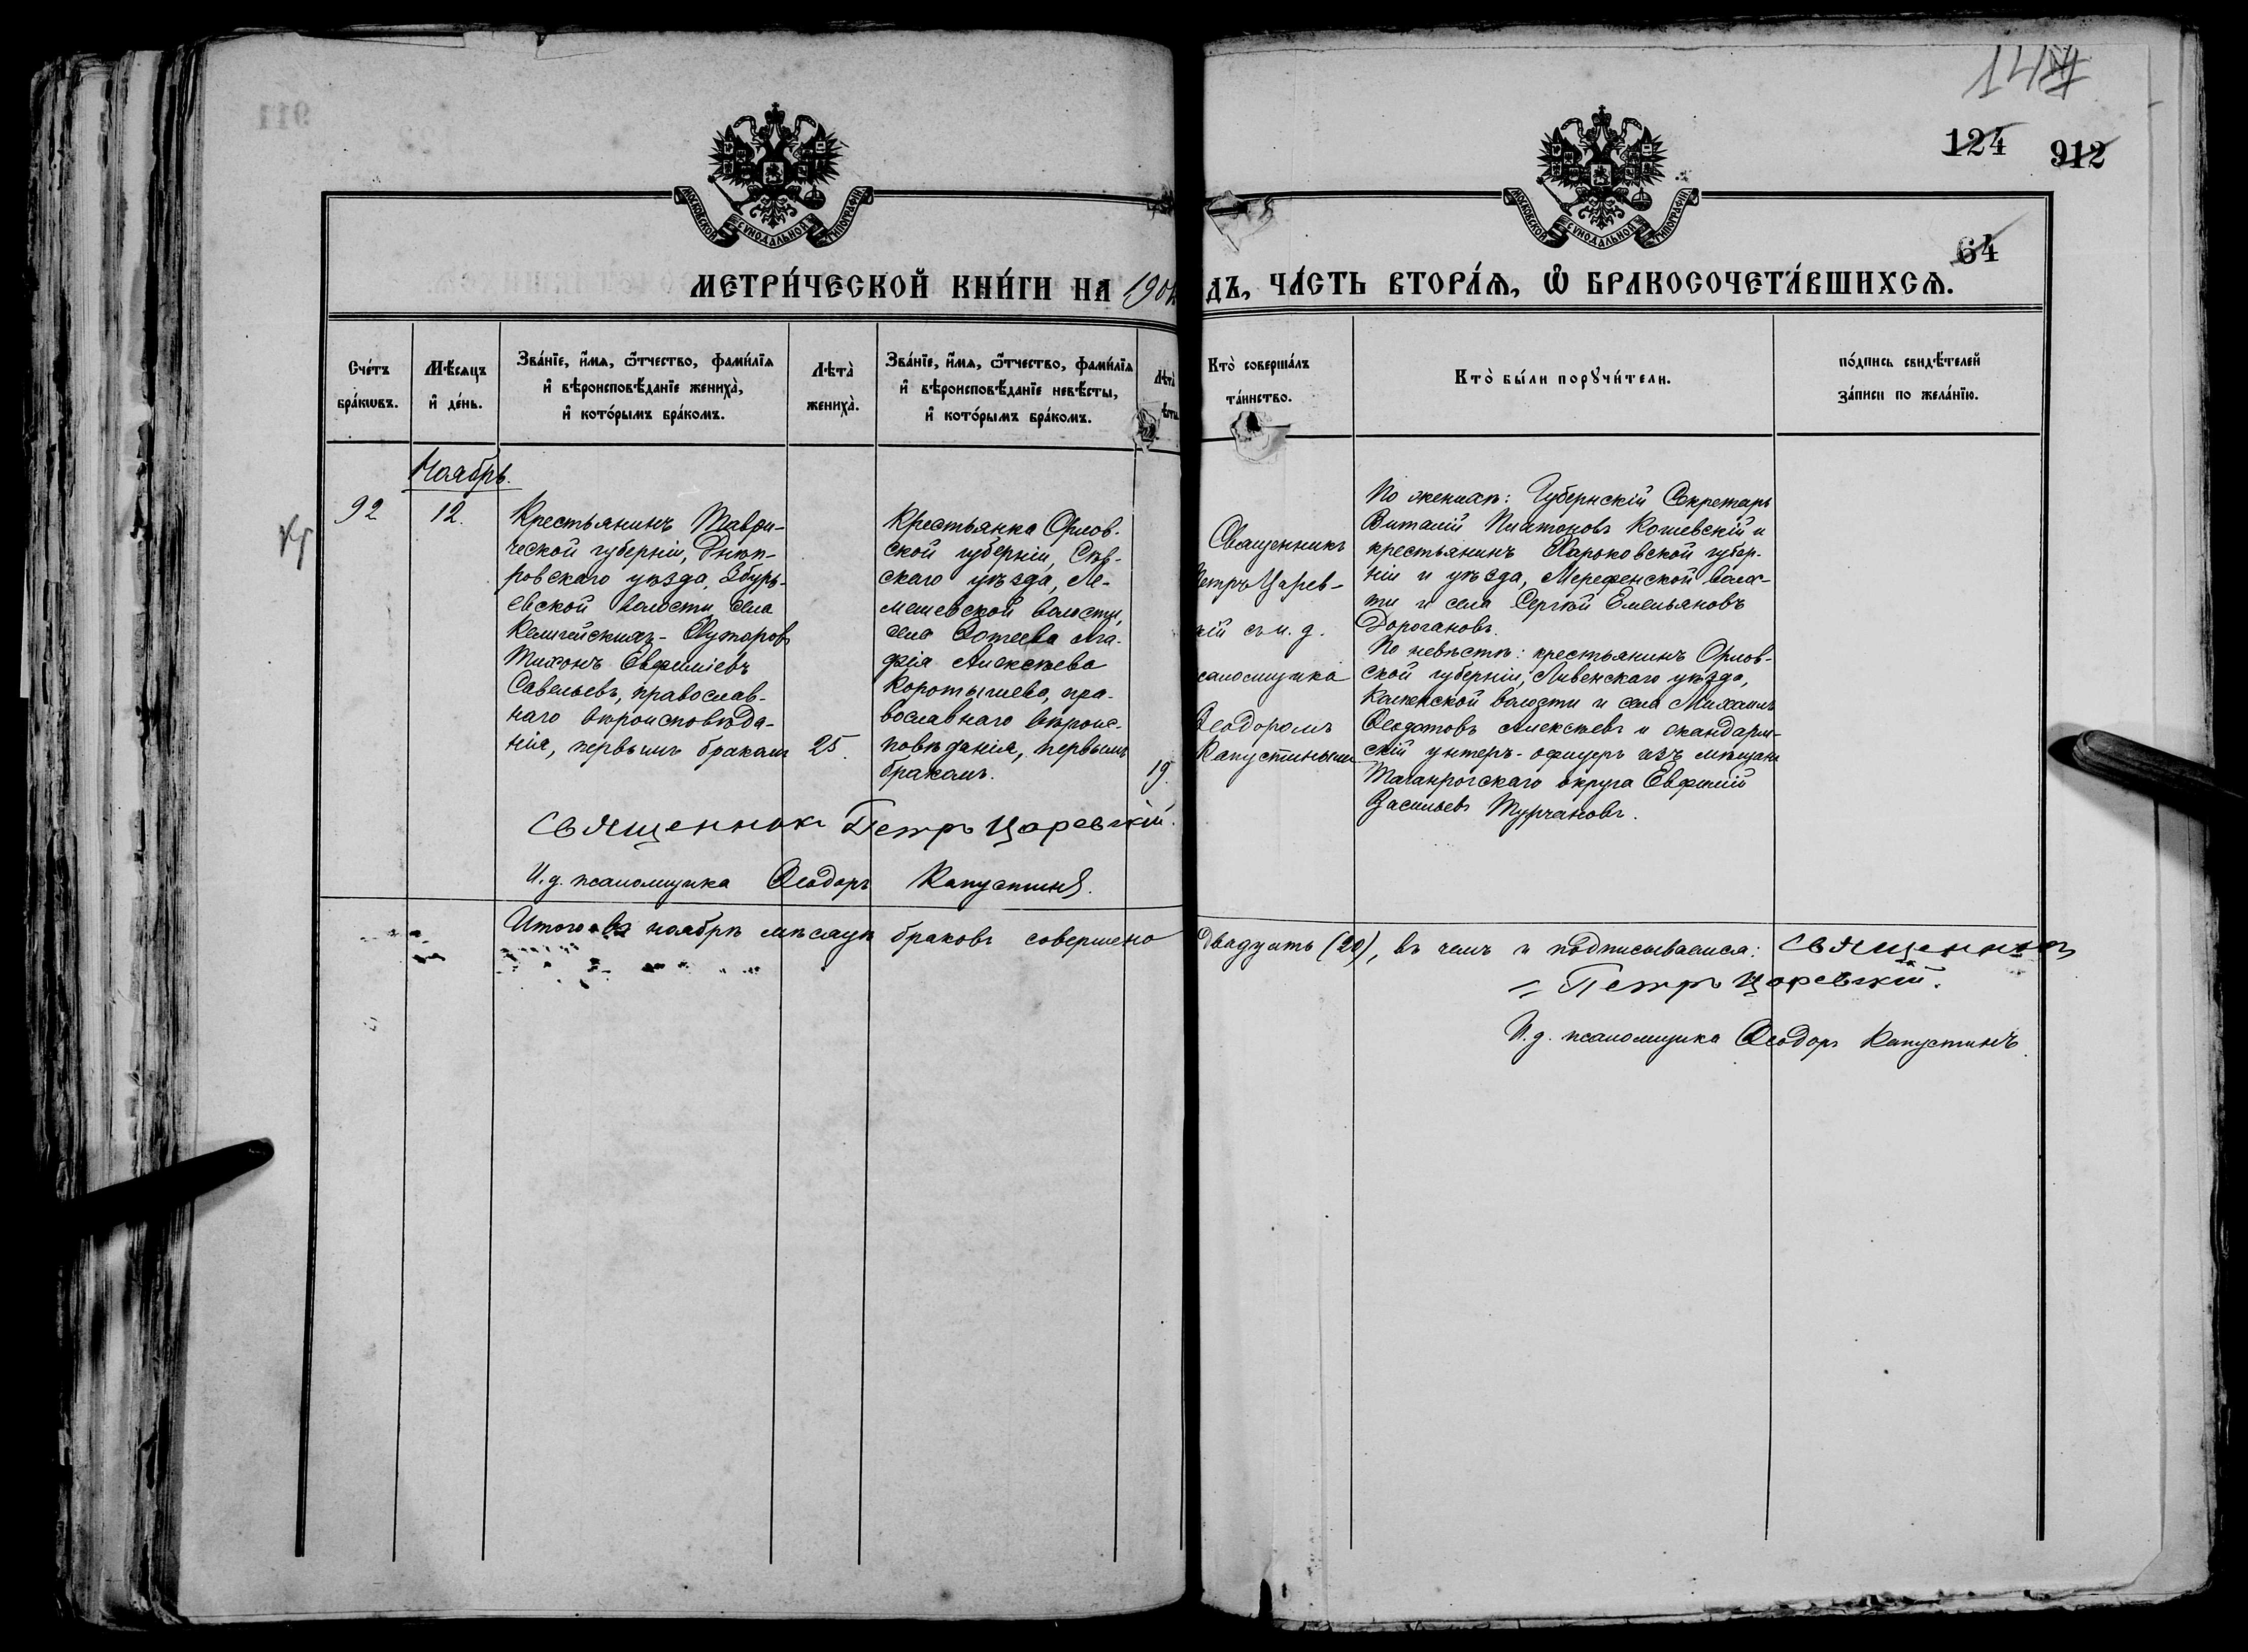 147
124 912
64
МОСКОВСКОЙ СУНОДАЛЬНОЙ ТИПОГРАФІИ
МОСКОВСКОЙ СУНОДАЛЬНОЙ ТИПОГРАФІИ
МЕТРИ́ЧЕСКОЙ КНИ́ГИ НА 190
ДЪ, ЧА́СТЬ ВТОРА́Ѧ, Ѡ БРАКОСОЧЕТА́ВШИХСѦ.
Сче́тъ бра́кѡвъ.
Мѣ́сяцъ и҆ де́нь.
Зва́нїе, и҆́мѧ, ѻ҆́тчество, фами́лїѧ
и҆ вѣроисповѣ́данїе жениха̀,
и҆ кото́рымъ бра́комъ.
Лѣта̀ жениха̀.
Зва́нїе, и҆́мѧ, ѻ҆́тчество, фами́лїѧ
и҆ вѣроисповѣ́данїе невѣ́сты,
и҆ кото́рымъ бра́комъ.
Лѣта̀
Кто̀ соверша́лъ
та́инство.
Кто̀ бы́ли порꙋчи́тели.
по́дпись свидѣ́телей
за́писи по жела́нїю.
Ноябрь.
92
12.
Крестьянинъ Таври-
ческой губерніи, Днѣп-
ровскаго уѣзда, Збурь-
евской волости, села
Келигейскихъ-Хуторовъ
Тихонъ Евфиміевъ
Савельевъ, православ-
наго вѣроисповѣда-
нія, первымъ бракомъ
25.
Крестьянка Орлов-
ской губерніи, Сѣв-
скаго уѣзда, Ле-
мешовской волости,
села Ага-
фія Алексѣева
Коротычева, пра-
вославнаго вѣроис-
повѣданія, первымъ
бракомъ.
19.
Священникъ
Петръ Царев-
кій съ и. д.
псаломщика
Ѳеодоромъ
Капустинымъ
По женихѣ: Губернскій Секретарь
Виталій Платоновъ Кошевскій и
крестьянинъ Харьковской губер-
ніи и уѣзда, Мерефенской волос-
ти и села Сергѣй Емельяновъ
Дорогановъ.
По невѣстѣ: крестьянинъ Орлов-
ской губерніи, Ливенскаго уѣзда,
волости и села Михаилъ
Ѳеодотовъ Алексѣевъ и жандарм-
скій унтеръ-офицеръ изъ мѣщанъ
Таганрогскаго округа Евфимій
Васильевъ Турчановъ.
Священникъ Петръ Царевскій.
И.д. псаломщика Ѳеодоръ Капустинъ.
Итого въ ноябрѣ мѣсяцѣ браковъ совершено
двадцать (20), въ чемъ и подписываемся: Священникъ
Петръ Царевскій.
И.д. псаломщика Ѳеодоръ Капустинъ.